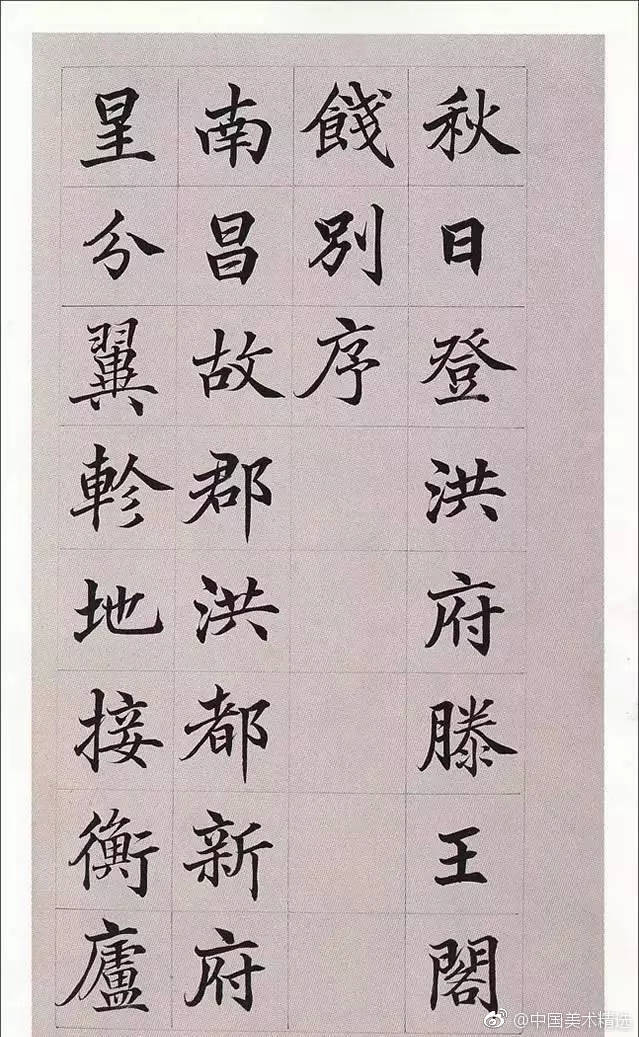 秋日登洪府滕王閣
餞別序
南昌故郡洪都新府
星分翼軫地接衡廬
@中国美术精选